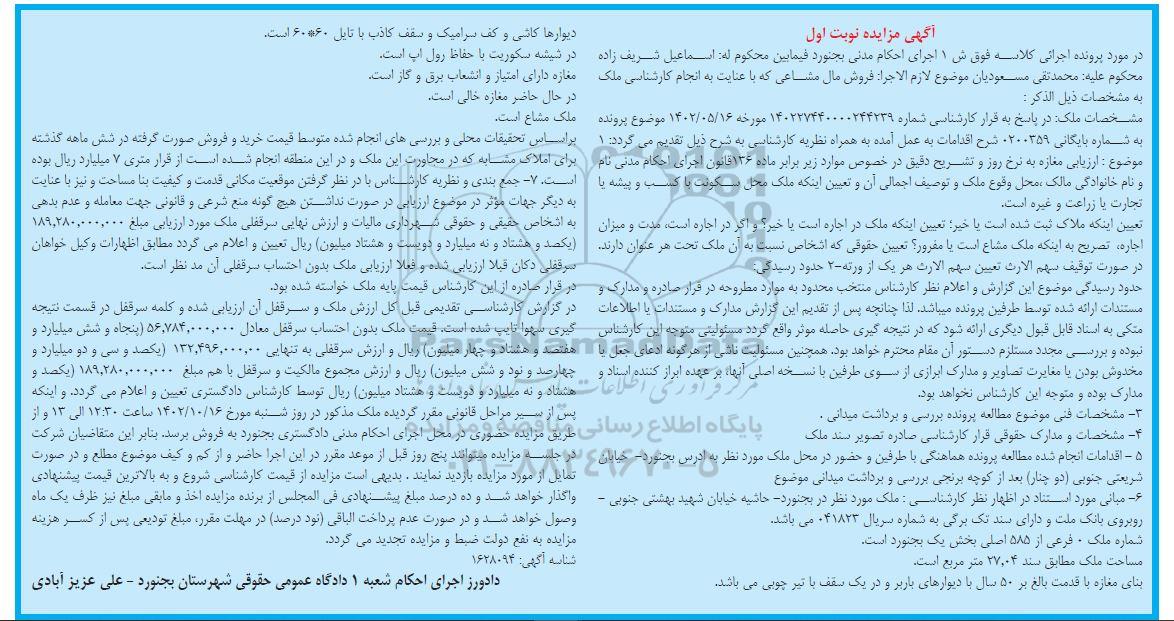 آگهی مزایده نوبت اول
در مورد پرونده اجرائی کلاسه فوق ش ۱ اجرای احکام مدنی بجنورد فیمابین محکوم له: اسماعیل شریف زاده
محکوم علیه: محمدتقی مسعودیان موضوع لازم الاجرا: فروش مال مشاعی که با عنایت به انجام کارشناسی ملک
به مشخصات ذیل الذکر :
مشخصات ملک: در پاسخ به قرار کارشناسی شماره ۱۴۰۲۲۷۴۴۰۰۰۰۲۴۴۲۳۹ مورخه ۱۴۰۲/۰۵/۱۶ موضوع پرونده
به شماره بایگانی ۰۲۰۰۳۵۹ شرح اقدامات به عمل آمده به همراه نظریه کارشناسی به شرح ذیل تقدیم می گردد: ۱
موضوع : ارزیابی مغازه به نرخ روز و تشریح دقیق در خصوص موارد زیر برابر ماده ۱۳۶قانون اجرای احکام مدنی نام
و نام خانوادگی مالک ،محل وقوع ملک و توصیف اجمالی آن و تعیین اینکه ملک محل سکونت یا کسب و پیشه یا
تجارت یا زراعت و غیره است.
تعیین اینکه ملاک ثبت شده است یا خیر؛ تعیین اینکه ملک در اجاره است یا خیر؟ و اگر در اجاره است، مدت و میزان
اجاره، تصریح به اینکه ملک مشاع است یا مفروز؟ تعیین حقوقی که اشخاص نسبت به آن ملک تحت هر عنوان دارند.
در صورت توقیف سهم الارث تعیین سهم الارث هر یک از ورثه-۲ حدود رسیدگی:
حدود رسیدگی موضوع این گزارش و اعلام نظر کارشناس منتخب محدود به موارد مطروحه در قرار صادره و مدارک و
مستندات ارائه شده توسط طرفین پرونده میباشد. لذا چنانچه پس از تقدیم این گزارش مدارک و مستندات یا اطلاعات
متکی به اسناد قابل قبول دیگری ارائه شود که در نتیجه گیری حاصله موثر واقع گردد مسئولیتی متوجه این کارشناس
نبوده و بررسی مجدد مستلزم دستور آن مقام محترم خواهد بود. همچنین مسئولیت ناشی از هرگونه ادعای جعل یا
مخدوش بودن یا مغایرت تصاویر و مدارک ابرازی از سوی طرفین با نسخه اصلی آنها، بر عهده ابراز کننده اسناد و
مدارک بوده و متوجه این کارشناس نخواهد بود.
۳- مشخصات فنی موضوع مطالعه پرونده بررسی و برداشت میدانی .
۴- مشخصات و مدارک حقوقی قرار کارشناسی صادره تصویر سند ملک
۵ - اقدامات انجام شده مطالعه پرونده هماهنگی با طرفین و حضور در محل ملک مورد نظر به ادرس بجنورد- خیابان
شریعتی جنوبی (دو چنار) بعد از کوچه برنجی بررسی و برداشت میدانی موضوع
۶- مبانی مورد استناد در اظهار نظر کارشناسی : ملک مورد نظر در بجنورد- حاشیه خیابان شهید بهشتی جنوبی -
روبروی بانک ملت و دارای سند تک برگی به شماره سریال ۰۴۱۸۲۳ می باشد.
شماره ملک ۰ فرعی از ۵۸۵ اصلی بخش یک بجنورد است.
مساحت ملک مطابق سند ۲۷,۰۴ متر مربع است.
بنای مغازه با قدمت بالغ بر ۵۰ سال با دیوارهای باربر و در یک سقف با تیر چوبی می باشد.
دیوارها کاشی و کف سرامیک و سقف کاذب با تایل ۶۰*۶۰ است.
در شیشه سکوریت با حفاظ رول اپ است.
مغازه دارای امتیاز و انشعاب برق و گاز است.
در حال حاضر مغازه خالی است.
ملک مشاع است.
براساس تحقیقات محلی و بررسی های انجام شده متوسط قیمت خرید و فروش صورت گرفته در شش ماهه گذشته
برای املاک مشابه که در مجاورت این ملک و در این منطقه انجام شده است از قرار متری ۷ میلیارد ریال بوده
است. ۷- جمع بندی و نظریه کارشناس با در نظر گرفتن موقعیت مکانی قدمت و کیفیت بنا مساحت و نیز با عنایت
به دیگر جهات مؤثر در موضوع ارزیابی در صورت نداشتن هیچ گونه منع شرعی و قانونی جهت معامله و عدم بدهی
به اشخاص حقیقی و حقوقی شهرداری مالیات و ارزش نهایی سرقفلی ملک مورد ارزیابی مبلغ ۱۸۹,۲۸۰,۰۰۰,۰۰۰
(یکصد و هشتاد و نه میلیارد و دویست و هشتاد میلیون) ریال تعیین و اعلام می گردد مطابق اظهارات وکیل خواهان
سرقفلی دکان قبلا ارزیابی شده و فعلا ارزیابی ملک بدون احتساب سرقفلی آن مد نظر است.
در قرار صادره از این کارشناس قیمت پایه ملک خواسته شده بود.
در گزارش کارشناسی تقدیمی قبل کل ارزش ملک و سرقفل آن ارزیابی شده و کلمه سرقفل در قسمت نتیجه
گیری سهوا تایپ شده است. قیمت ملک بدون احتساب سرقفل معادل ۵۶,۷۸۴,۰۰۰,۰۰۰ (پنجاه و شش میلیارد و
هفتصد و هشتاد و چهار میلیون) ریال و ارزش سرقفلی به تنهایی ۱۳۲,۴۹۶,۰۰۰,۰۰ (یکصد و سی و دو میلیارد و
چهارصد و نود و شش میلیون) ریال و ارزش مجموع مالکیت و سرقفل با هم مبلغ ۱۸۹,۲۸۰,۰۰۰,۰۰۰ (یکصد و
هشتاد و نه میلیارد و دویست و هشتاد میلیون) ریال توسط کارشناس دادگستری تعیین و اعلام می گردد. و اینکه
پس از سیر مراحل قانونی مقرر گردیده ملک مذکور در روز شنبه مورخ ۱۴۰۲/۱۰/۱۶ ساعت ۱۲:۳۰ الی ۱۳ و از
طریق مزایده حضوری در محل اجرای احکام مدنی دادگستری بجنورد به فروش برسد. بنابر این متقاضیان شرکت
در جلسه مزایده میتوانند پنج روز قبل از موعد مقرر در این اجرا حاضر و از کم و کیف موضوع مطلع و در صورت
تمایل از مورد مزایده بازدید نمایند . بدیهی است مزایده از قیمت کارشناسی شروع و به بالاترین قیمت پیشنهادی
واگذار خواهد شد و ده درصد مبلغ پیشنهادی فی المجلس از برنده مزایده اخذ و مابقی مبلغ نیز ظرف یک ماه
وصول خواهد شد و در صورت عدم پرداخت الباقی (نود درصد) در مهلت مقرر، مبلغ تودیعی پس از کسر هزینه
مزایده به نفع دولت ضبط و مزایده تجدید می گردد.
شناسه آگهی: ۱۶۲۸۰۹۴
دادورز اجرای احکام شعبه ۱ دادگاه عمومی حقوقی شهرستان بجنورد - علی عزیز آبادی
ParsNamadData
پایگاه اطلاع رسانی مناقصه و مزایده
۰۲۱-۸۸۳۴۹۶۷۰-۵